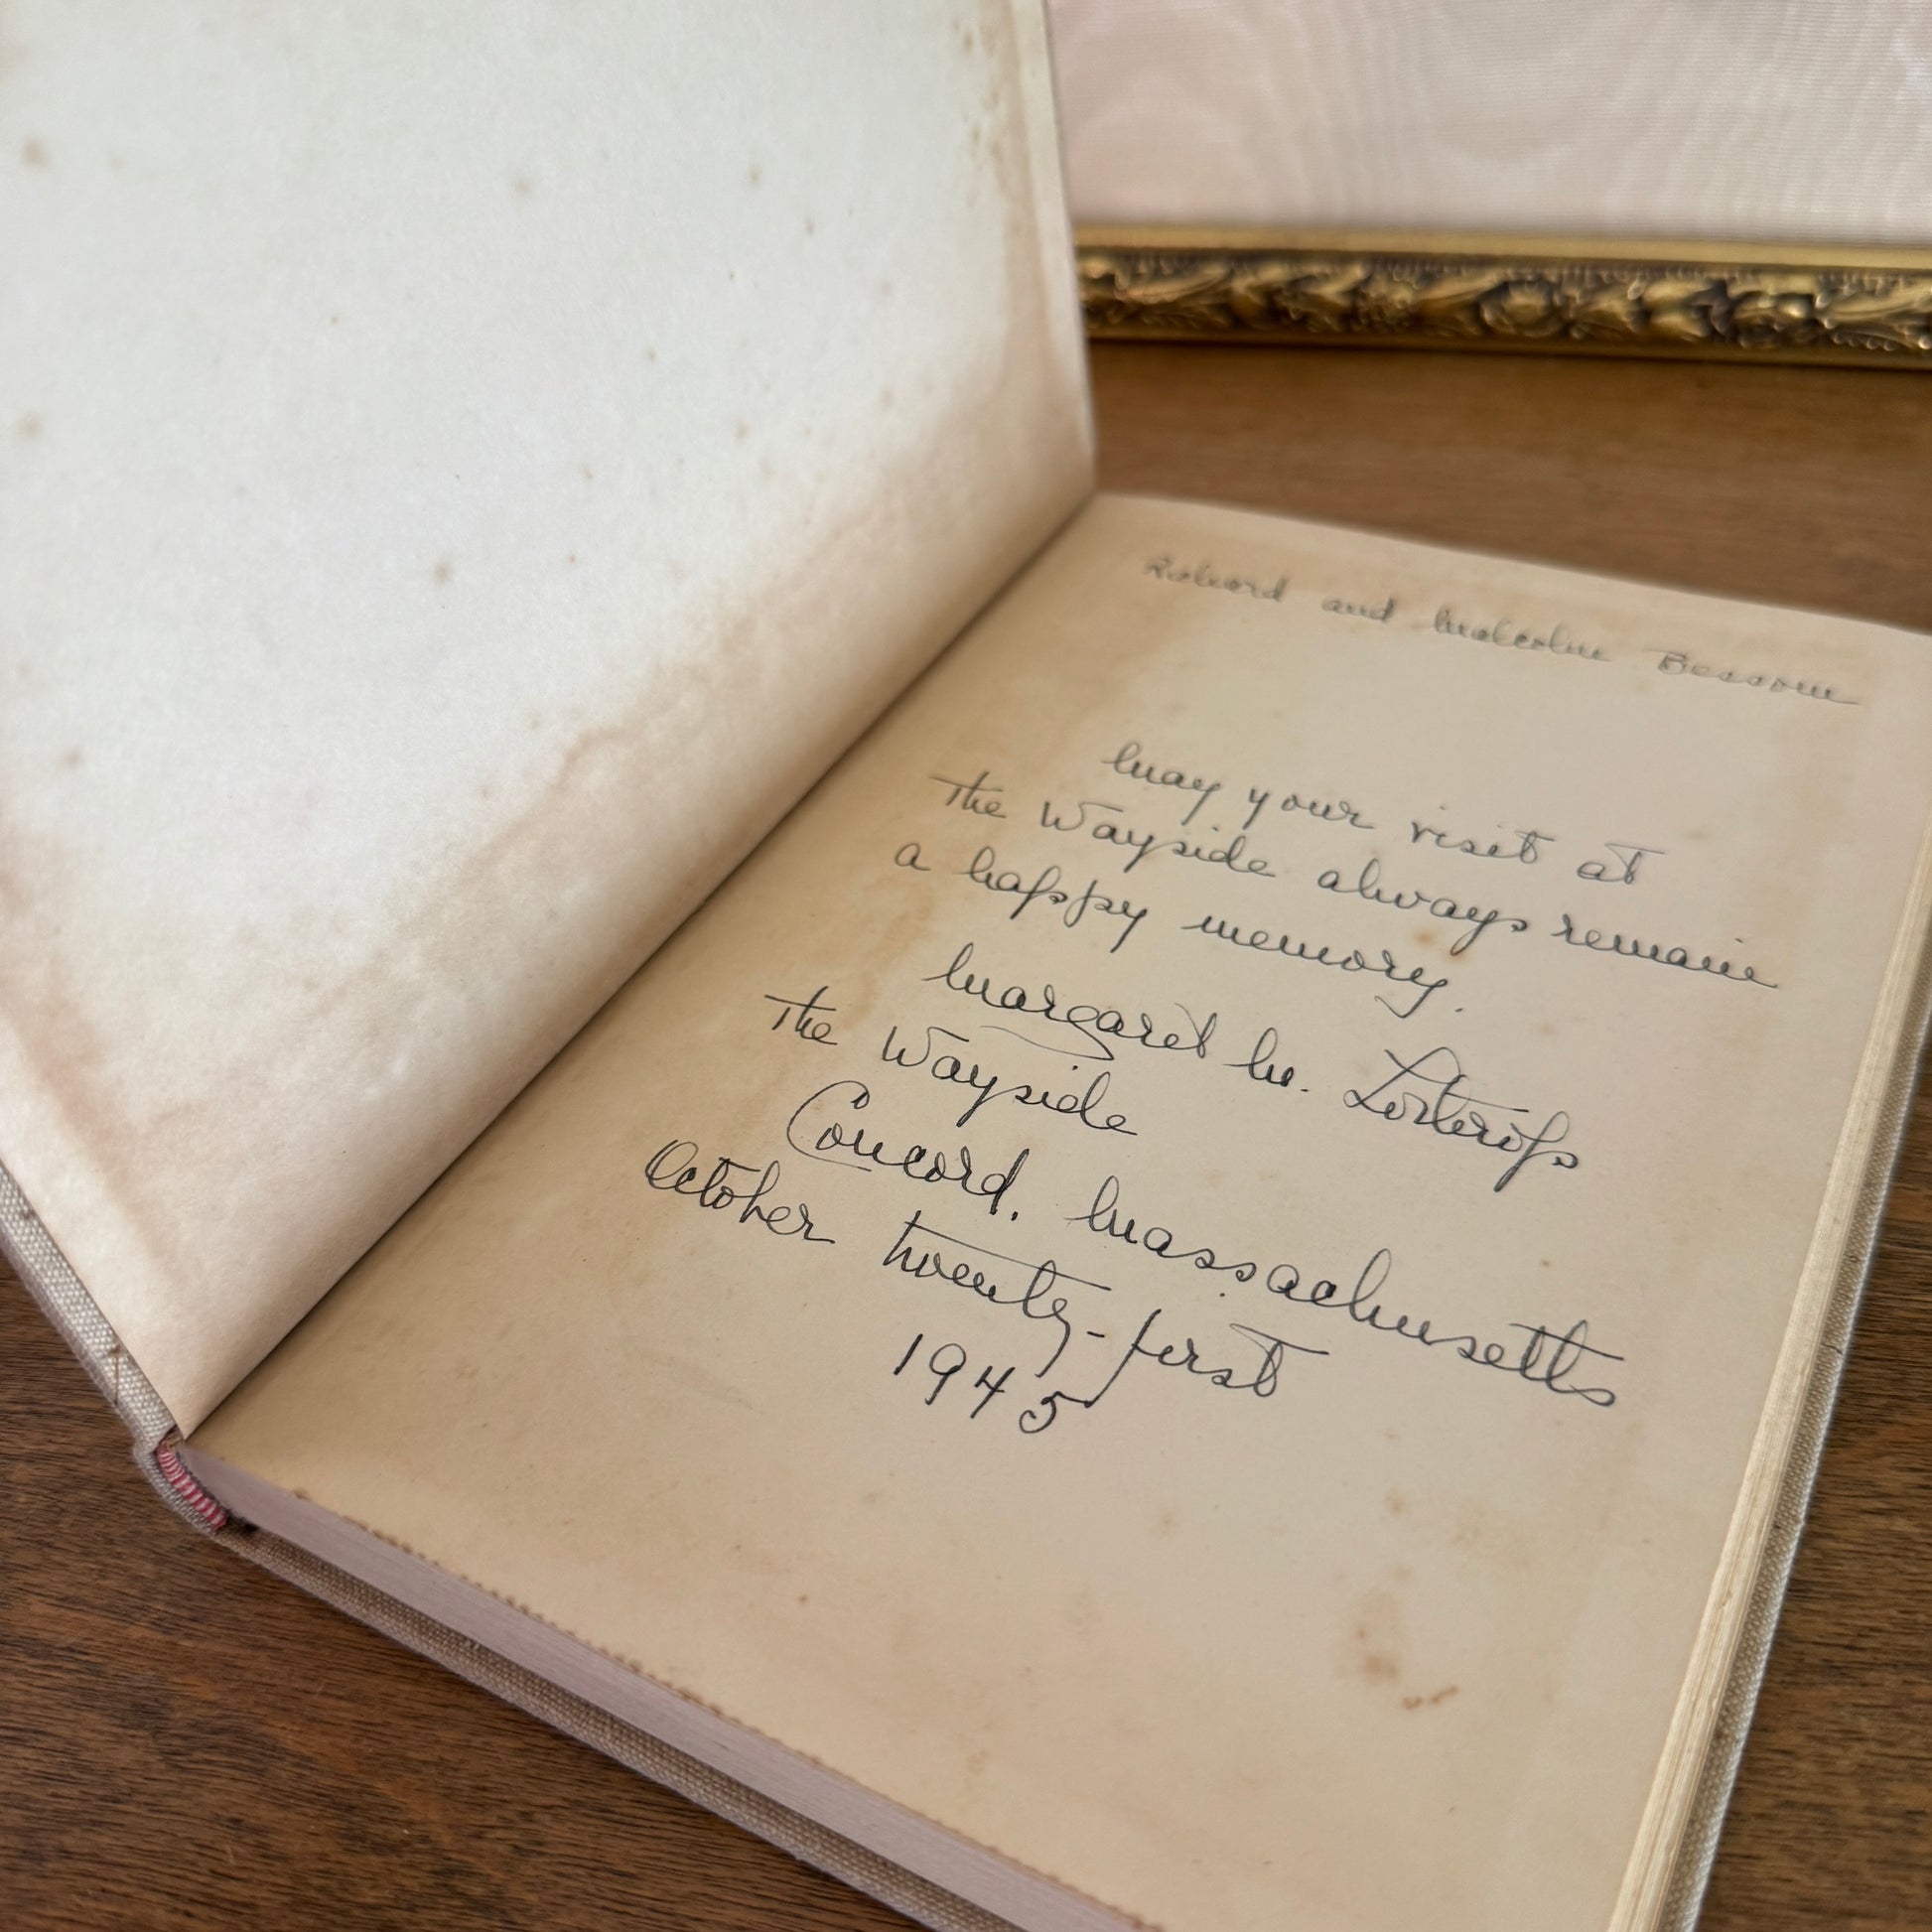 Richard and Malcolm Bessom
May your visit at
The Wayside always remain
a happy memory.
Margaret M. Lothrop
The Wayside
Concord. Massachusetts
October twenty-first
1945